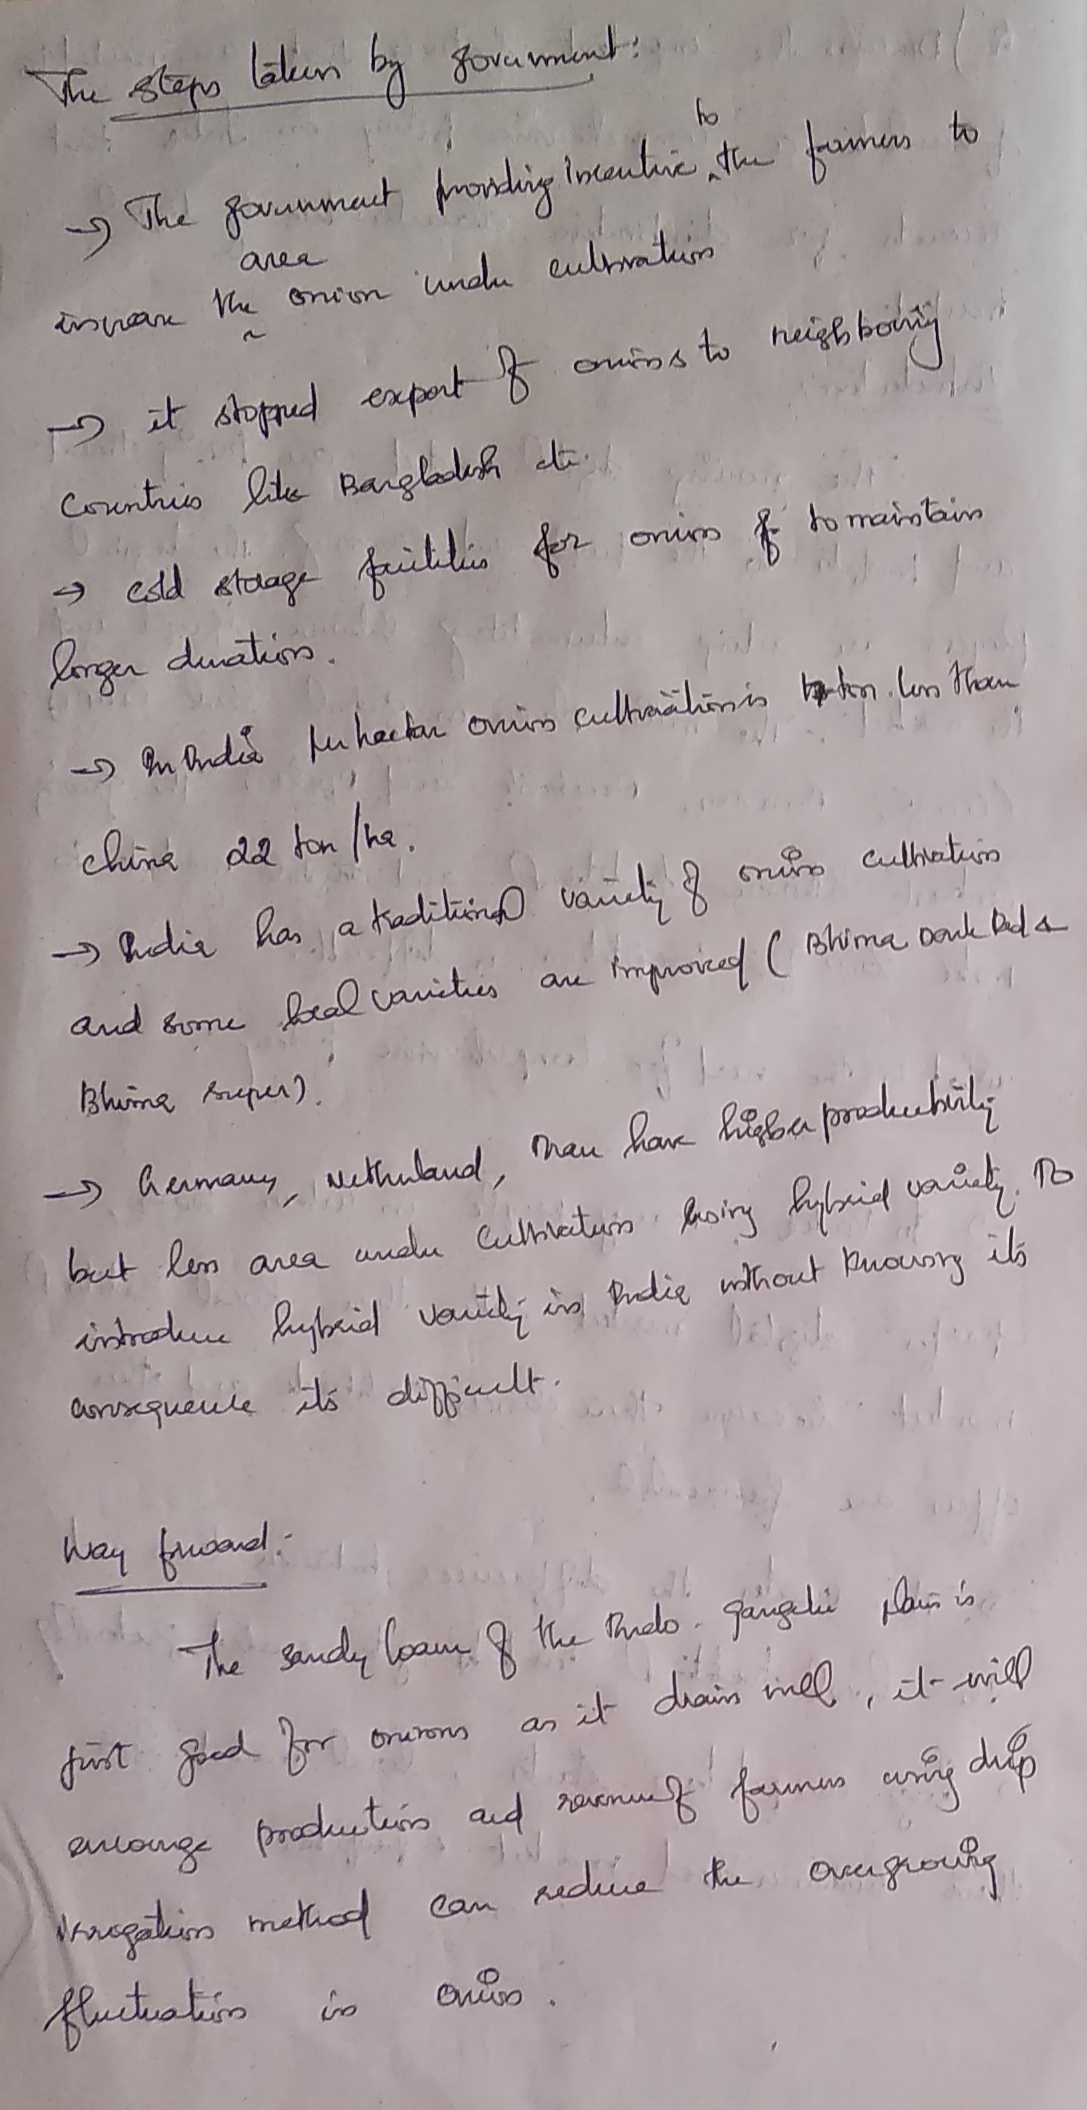 The steps taken by government:
→ The government providing incentive to the farmers to
increase the area onion under cultivation
→ it stopped export of onions to neighboring
Countries like Bangladesh etc.
→ cold storage facilities for onion to maintain
longer duration.
→ In India per hectar onion cultivation is ton less than
china 22 ton/ha.
→ India has a traditional variety of onion cultivation
and some local varieties are improved (Bhima Dark Red &
Bhima super).
→ Germany, Netherland, have higher productivity
but less area under cultivation using hybrid variety. To
introduce hybrid variety in India without knowing its
consequence its difficult.
Way forward:-
The sandy loam of the Indo-gangetic plain is
just good for onions as it drain well, it will
encourage production and revenue of farmers using drip
irrogation method can reduce the overgrowing
fluctuation in onion.